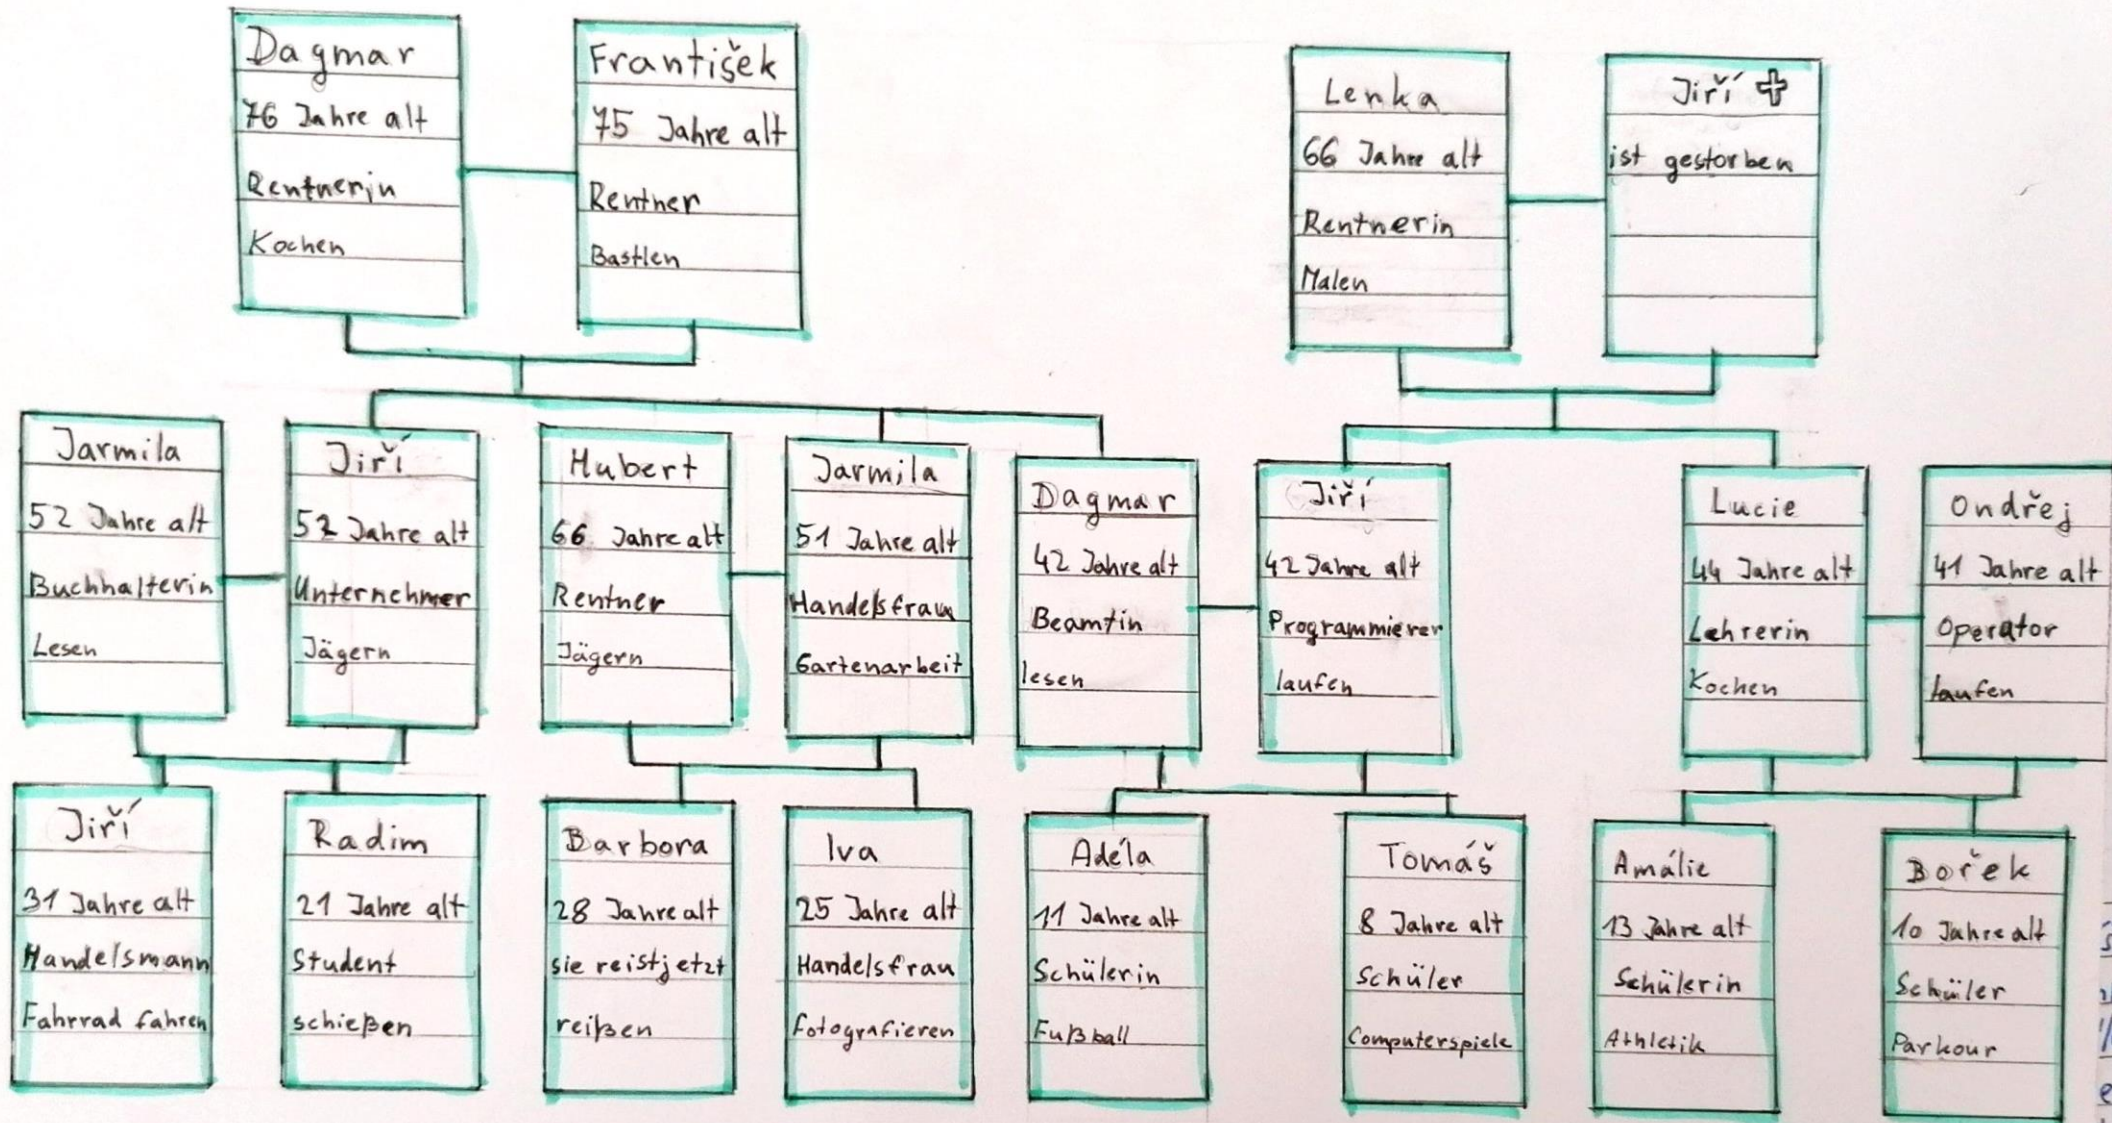 Dagmar
76 Jahre alt
Rentnerin
Kochen
František
75 Jahre alt
Rentner
Bastlen
Lenka
66 Jahre alt
Rentnerin
Malen
Jiří ✝
ist gestorben
Jarmila
52 Jahre alt
Buchhalterin
Lesen
Jiří
52 Jahre alt
Unternehmer
Jägern
Hubert
66 Jahre alt
Rentner
Jägern
Jarmila
51 Jahre alt
Handelsfrau
Gartenarbeit
Dagmar
42 Jahre alt
Beamtin
lesen
Jiří
42 Jahre alt
Programmierer
laufen
Lucie
44 Jahre alt
Lehrerin
Kochen
Ondřej
41 Jahre alt
Operator
laufen
Jiří
31 Jahre alt
Handelsmann
Fahrrad fahren
Radim
21 Jahre alt
Student
schießen
Barbora
28 Jahre alt
sie reist jetzt
reißen
Iva
25 Jahre alt
Handelsfrau
fotografieren
Adéla
11 Jahre alt
Schülerin
Fußball
Tomáš
8 Jahre alt
Schüler
Computerspiele
Amálie
13 Jahre alt
Schülerin
Athletik
Bořek
10 Jahre alt
Schüler
Parkour